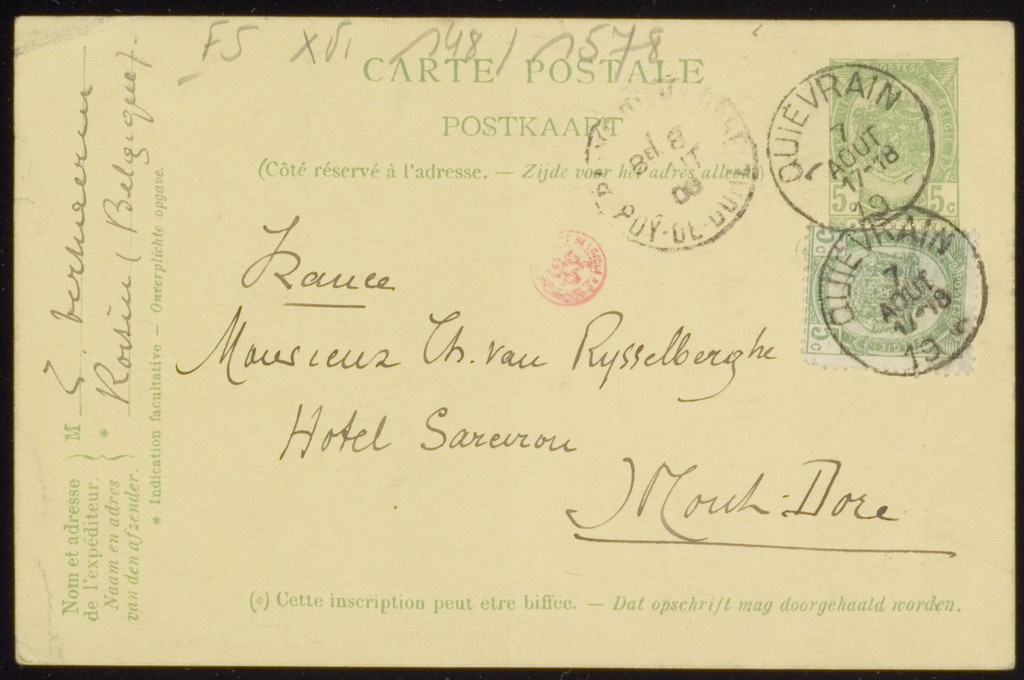 FS XVI 148/1578
CARTE POSTALE
POSTKAART
(Côté réservé à l'adresse. — Zijde voor het adres alleen.)
QUIÉVRAIN
7
AOUT
17-18
19
5c 5c
QUIÉVRAIN
7
AOUT
17-18
19
PUY-DE-DÔME
8
France
Monsieur Th. van Rysselberghe
Hotel Sarciron
Mont-Dore
(*) Cette inscription peut être biffée. — Dat opschrift mag doorgehaald worden.
Nom et adresse
de l'expéditeur.
Naam en adres
van den afzender.
M E. Verhaeren
* Roisin (Belgique).
* Indication facultative — Onverplichte opgave.